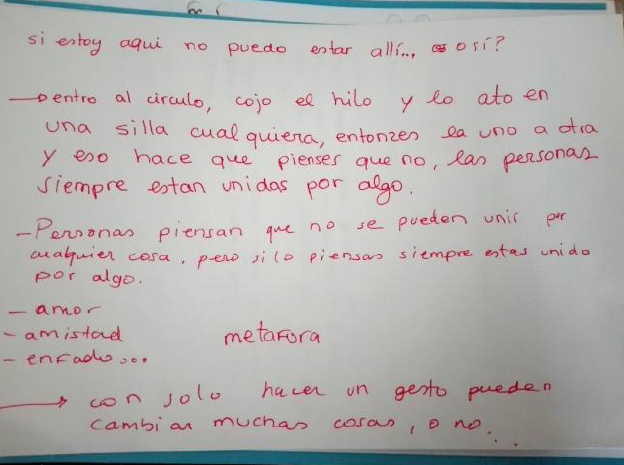 si estoy aqui no puedo estar allí... o sí?
→ entro al circulo, cojo el hilo y lo ato en
una silla cualquiera, entonzes la uno a otra
y eso hace que pienses que no, las personas
siempre estan unidas por algo.
- Personas piensan que no se pueden unir por
cualquier cosa, pero si lo piensas siempre estas unido
por algo.
- amor
- amistad metafora
- enfado...
→ con solo hacer un gesto pueden
cambiar muchas cosas, o no...